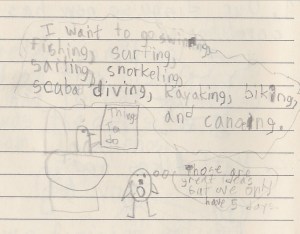 I want to go swiming,
fishing, surfing,
sailing, snorkeling,
scuba diving, kayaking, biking,
and canoing.
Things
To
Do
Those are
great ideas
but we only
have 5 days.